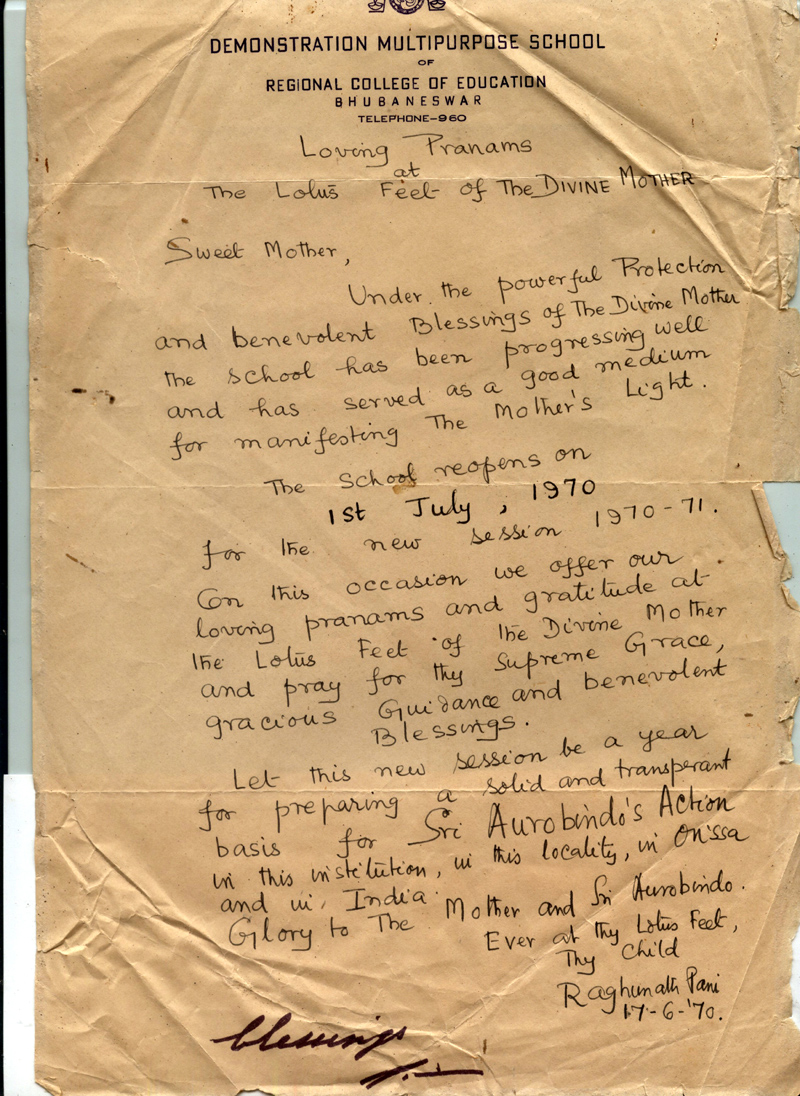 DEMONSTRATION MULTIPURPOSE SCHOOL
OF
REGIONAL COLLEGE OF EDUCATION
BHUBANESWAR
TELEPHONE-960
Loving Pranams
at
The Lotus Feet of The DIVINE MOTHER
Sweet Mother,
Under the powerful Protection
and benevolent Blessings of The Divine Mother
the school has been progressing well
and has served as a good medium
for manifesting The Mother's Light.
The school reopens on
1st July, 1970
for the new session 1970-71.
On this occasion we offer our
loving pranams and gratitude at
the Lotus Feet of the Divine Mother
and pray for thy Supreme Grace,
gracious Guidance and benevolent
Blessings.
Let this new session be a year
for preparing a solid and transperant
basis for Sri Aurobindo's Action
in this institution, in this locality, in Orissa
and in India.
Glory to The Mother and Sri Aurobindo.
Ever at thy Lotus Feet,
Thy Child
Raghunath Pani
17-6-'70.
blessings